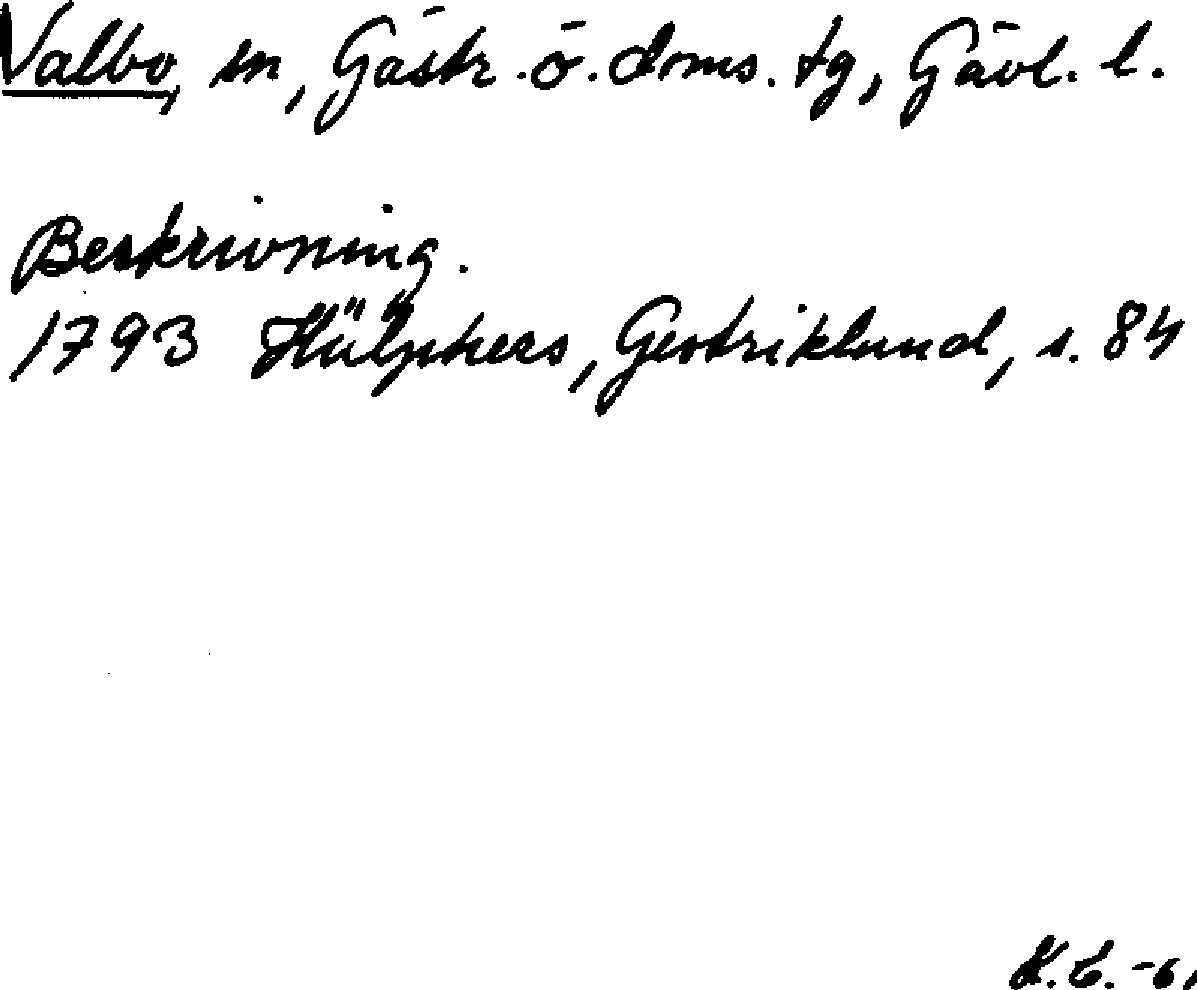 Valbo, sn, Gästr. ö. doms. tg, Gävl. l.
Beskrivning.
1793 Hülphers, Gestrikland, s. 84